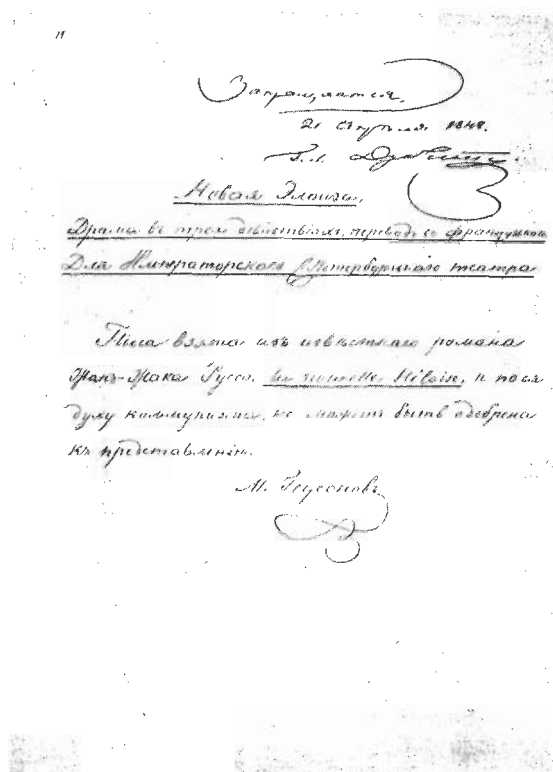 Запрещается.
21 Апреля 1848.
Г. Л. Дубельтъ.
Новая Элоиза.
Драма въ трехъ дѣйствіяхъ, переводъ съ французскаго
Для Императорскаго С. Петербургскаго театра
Піеса взята изъ извѣстнаго романа
Жанъ-Жака Руссо, La nouvelle Héloïse, и по
духу коммунизма, не можетъ быть одобрена
къ представленію.
М. Гедеоновъ